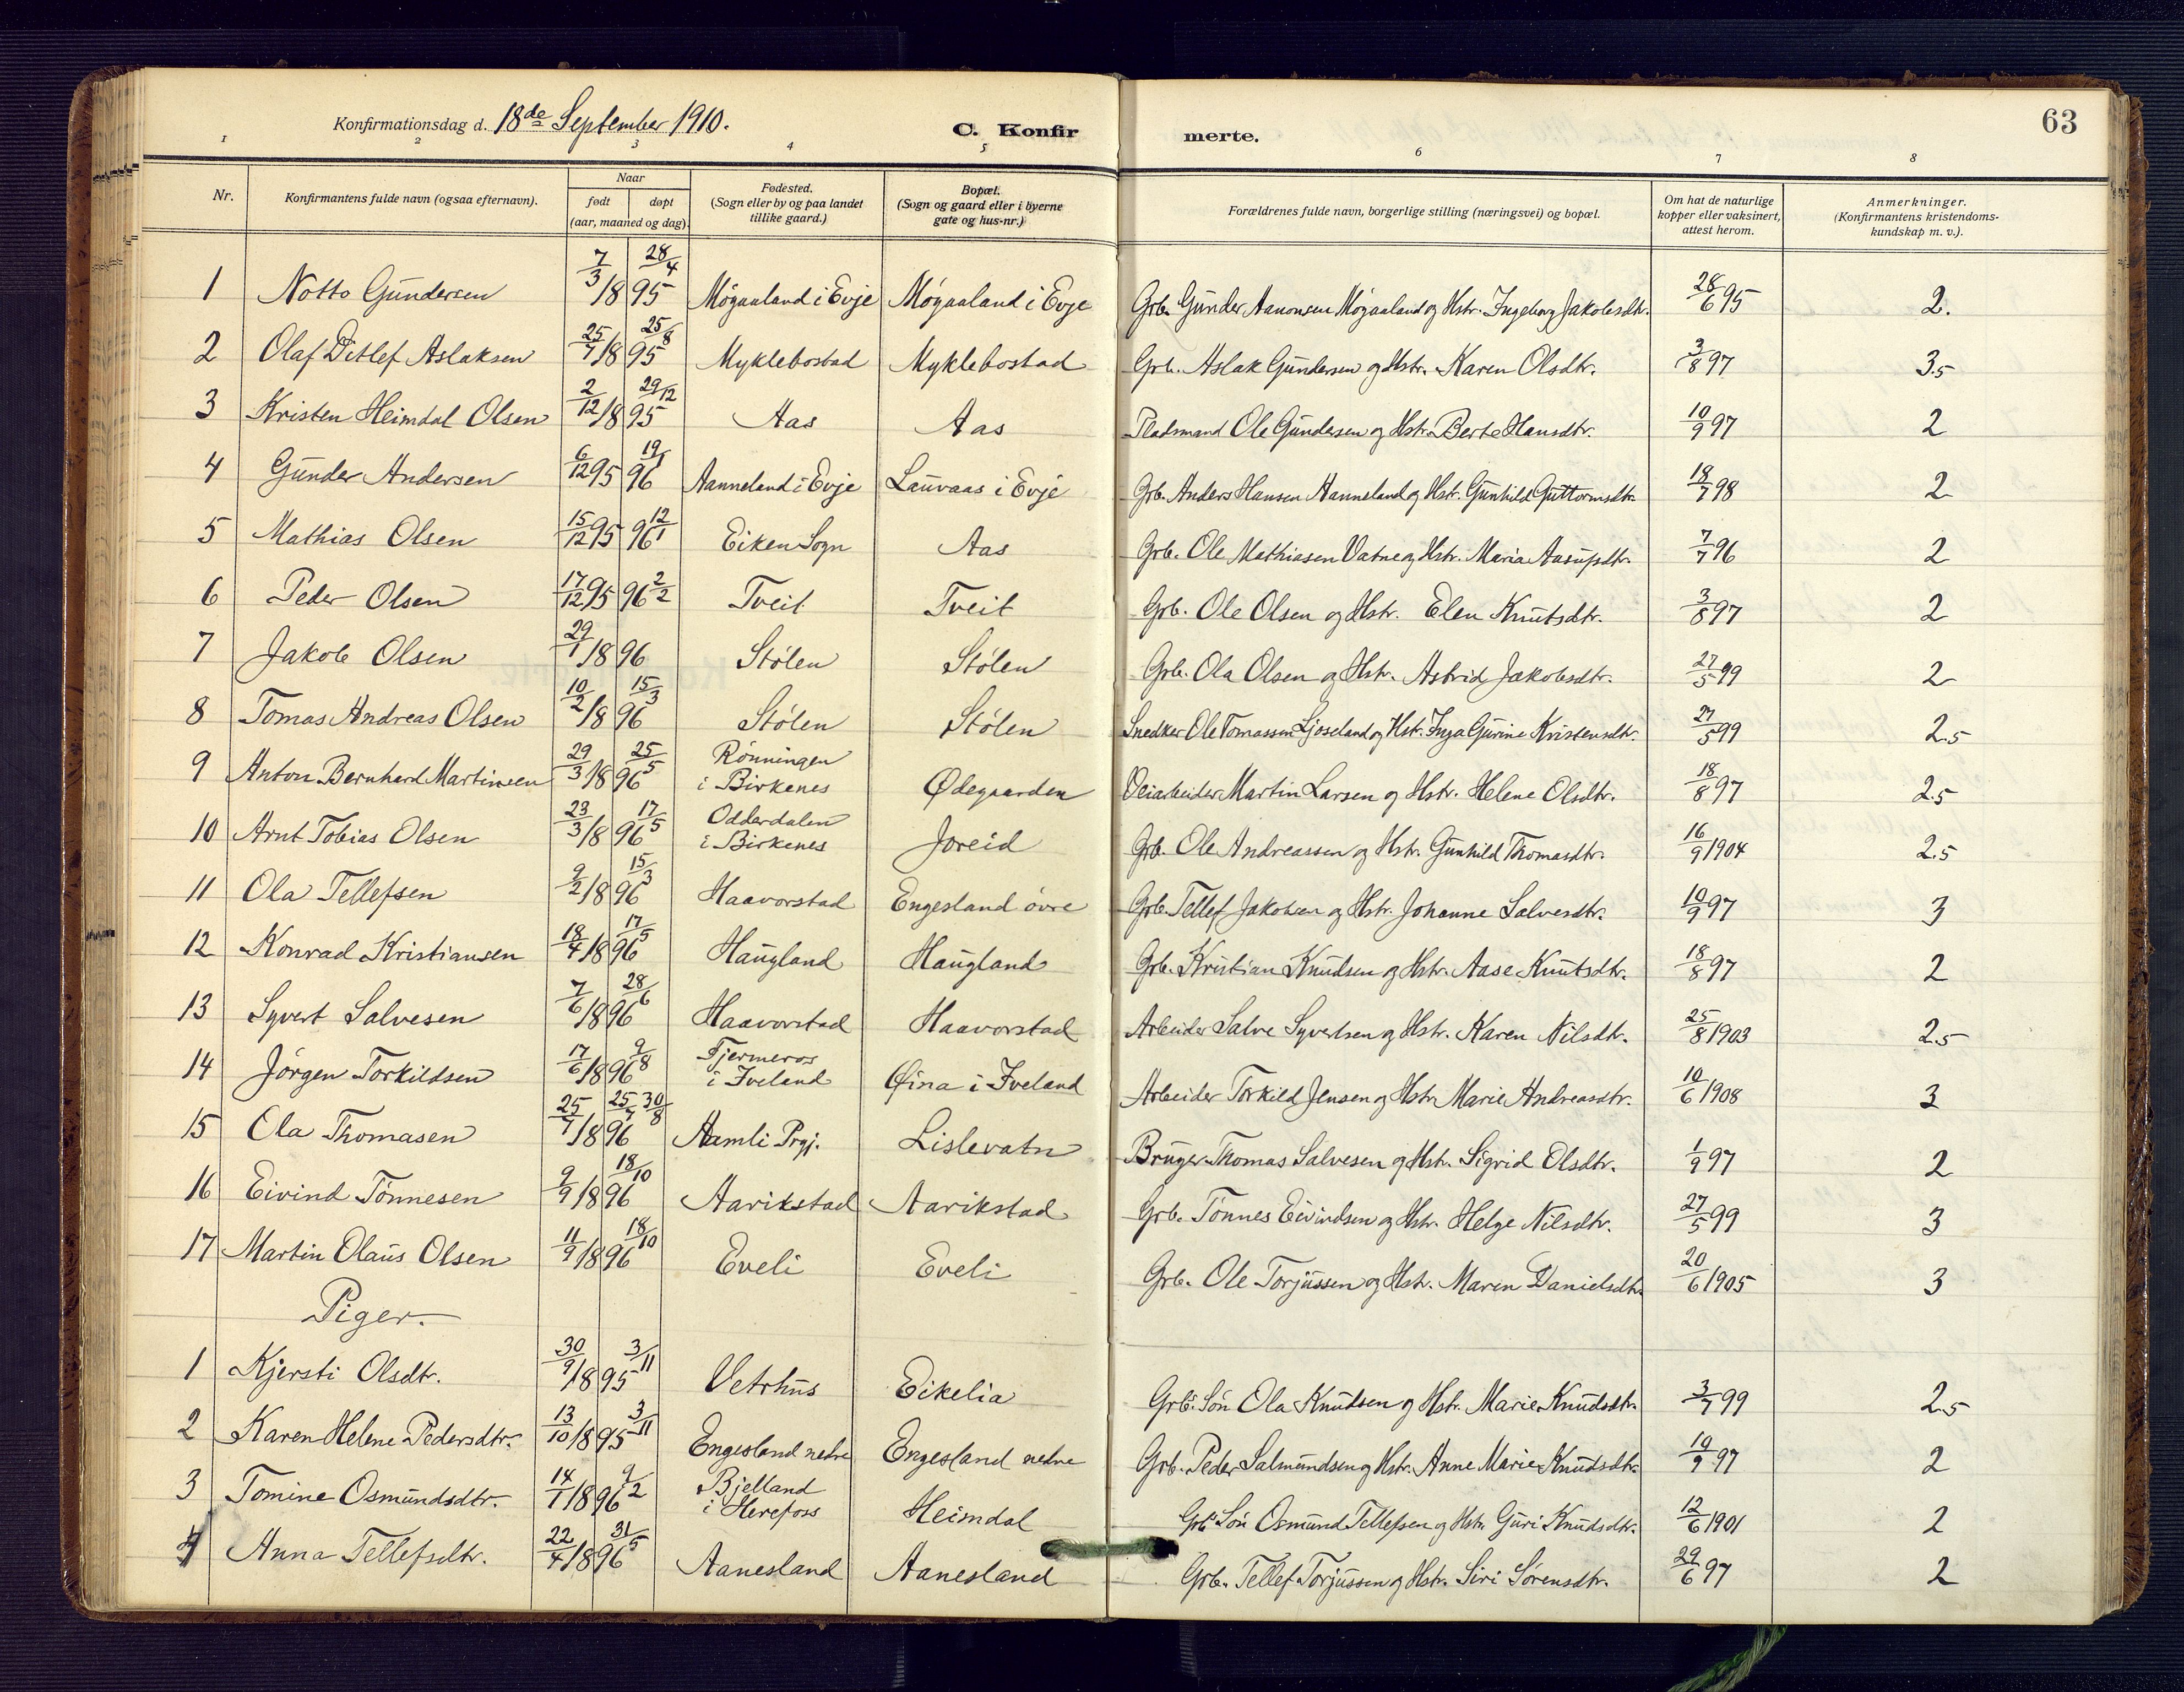 Konfirmationsdag d. 18de September 1910. C. Konfir merte. 63
1 2 3 4 5 6 7 8
Nr. Konfirmantens fulde navn (ogsaa efternavn). Naar født døpt (aar, maaned og dag) Fødested. (Sogn eller by og paa landet tillike gaard.) Bopæl. (Sogn og gaard eller i byerne gate og hus-nr.) Forældrenes fulde navn, borgerlige stilling (næringsvei) og bopæl. Om hat de naturlige kopper eller vaksinert, attest herom. Anmerkninger. (Konfirmantens kristendoms-kundskap m. v.).
1 Notto Gundersen 7/3 1895 28/4 Møgaaland i Evje Møgaaland i Evje Grb. Gunder Aanonsen Møgaaland og Hstr. Ingeborg Jakobsdtr. 28/6 95 2.
2 Olaf Ditlef Aslaksen 25/7 1895 25/8 Myklebostad Myklebostad Grb. Aslak Gundersen og Hstr. Karen Olsdtr. 3/8 97 3.5
3 Kristen Heimdal Olsen 2/12 1895 29/12 Aas Aas Pladsmand Ole Gundersen og Hstr. Berte Hansdtr. 10/9 97 2
4 Gunder Andersen 6/12 95 19/1 96 Aanneland i Evje Lauvaas i Evje Grb. Anders Hansen Aanneland og Hstr. Gunhild Guttormsdtr. 18/7 98 2
5 Mathias Olsen 15/12 95 96 12/1 Eiken Sogn Aas Grb. Ole Mathiasen Vatne og Hstr. Maria Aasupsdtr. 7/7 96 2
6 Peder Olsen 17/12 95 96 2/2 Tveit Tveit Grb. Ole Olsen og Hstr. Elen Knutsdtr. 3/8 97 2
7 Jakob Olsen 29/1 1896 Stølen Stølen Grb. Ola Olsen og Hstr. Astrid Jakobsdtr. 27/5 99 2
8 Tomas Andreas Olsen 10/2 1896 15/3 Stølen Stølen Snedker Ole Tomassen Ljoseland og Hstr. Inga Gurine Kristensdtr. 27/5 99 2.5
9 Anton Bernhard Martinsen 29/3 1896 25/5 Rønningen i Birkenes Ødegaarden Veiarbeider Martin Larsen og Hstr. Helene Olsdtr. 18/8 97 2.5
10 Arnt Tobias Olsen 23/3 1896 17/5 Odderdalen i Birkenes Joreid Grb. Ole Andreassen og Hstr. Gunhild Thomasdtr. 16/9 1904 2.5
11 Ola Tellefsen 9/2 1896 15/3 Haavorstad Engesland øvre Grb. Tellef Jakobsen og Hstr. Johanne Salvesdtr. 10/9 97 3
12 Konrad Kristiansen 18/4 1896 17/5 Haugland Haugland Grb. Kristian Knudsen og Hstr. Aase Knutsdtr. 18/8 97 2
13 Syvert Salvesen 7/6 1896 28/6 Haavorstad Haavorstad Arbeider Salve Syvertsen og Hstr. Karen Nilsdtr. 25/8 1903 2.5
14 Jørgen Torkildsen 17/6 1896 9/8 Fjermeros i Iveland Øina i Iveland Arbeider Torkild Jensen og Hstr. Marie Andreasdtr. 10/6 1908 3
15 Ola Thomasen 25/7 1896 25/7 30/8 Aamli Prgj. Lislevatn Bruger Thomas Salvesen og Hstr. Sigrid Olsdtr. 1/9 97 2
16 Eivind Tønnesen 9/9 1896 18/10 Aarikstad Aarikstad Grb. Tønnes Eivindsen og Hstr. Helge Nilsdtr. 27/5 99 3
17 Martin Olaus Olsen 11/9 1896 18/10 Eveli Eveli Grb. Ole Torjussen og Hstr. Maren Danielsdtr. 20/6 1905 3
Piger.
1 Kjersti Olsdtr. 30/9 1895 3/11 Vetrhus Eikelia Grb. Søn Ola Knudsen og Hstr. Marie Knudsdtr. 3/7 99 2.5
2 Karen Helene Pedersdtr. 13/10 1895 3/11 Engesland nedre Engesland nedre Grb. Peder Salmundsen og Hstr. Anne Marie Knudsdtr. 10/9 97 2
3 Tomine Osmundsdtr. 14/1 1896 9/2 Bjelland i Herefoss Heimdal Grb. Søn Osmund Tellefsen og Hstr. Guri Knudsdtr. 12/6 1901 2
4 Anna Tellefsdtr. 22/4 1896 31/5 Aanesland Aanesland Grb. Tellef Torjussen og Hstr. Siri Sørensdtr. 29/6 97 2